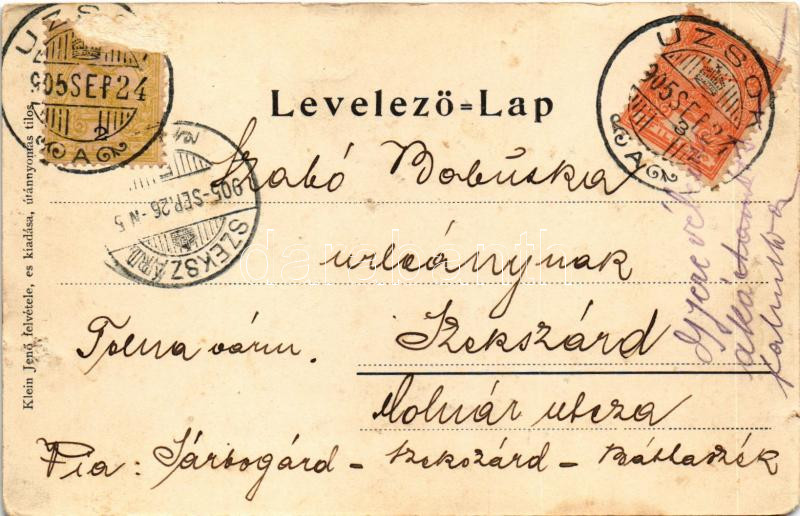 UZSOK
905 SEP 24
2
A
UZSOK
905 SEP 24
3
A
Levelező=Lap
905-SEP.26-N 5
SZEKSZÁRD
Szabó Babuska
urleánynak
Tolna várm. Szekszárd
Molnár utcza
Via: Sárbogárd – Szekszárd – Báttaszék
Gyere velem
Klein Jenő felvétele, es kiadása, utánnyomás tilos.
darabanth